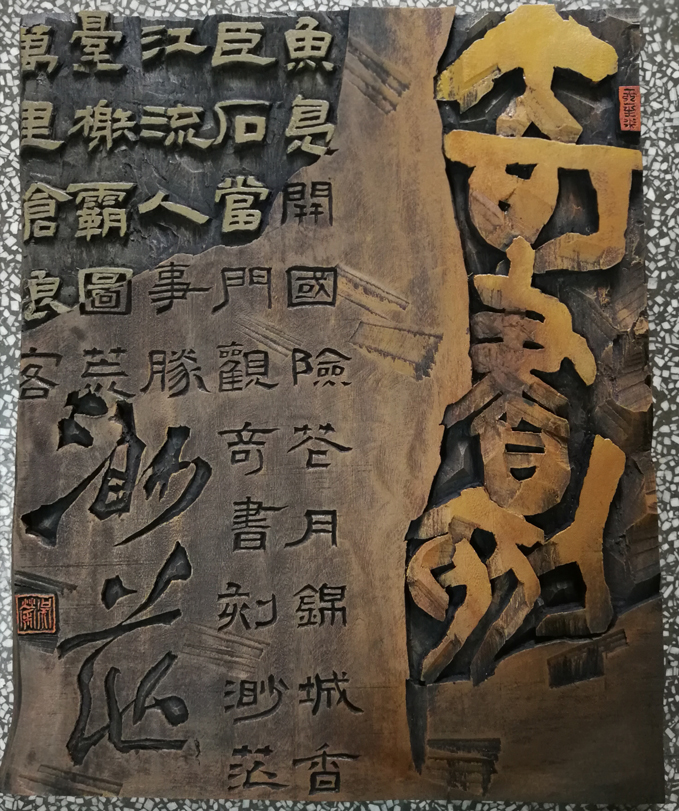 奇書刻
魚鳧開國險花月錦城香
巨石當門觀奇書刻渺茫
江流人事勝
臺榭霸圖荒
萬里滄浪客
渺茫